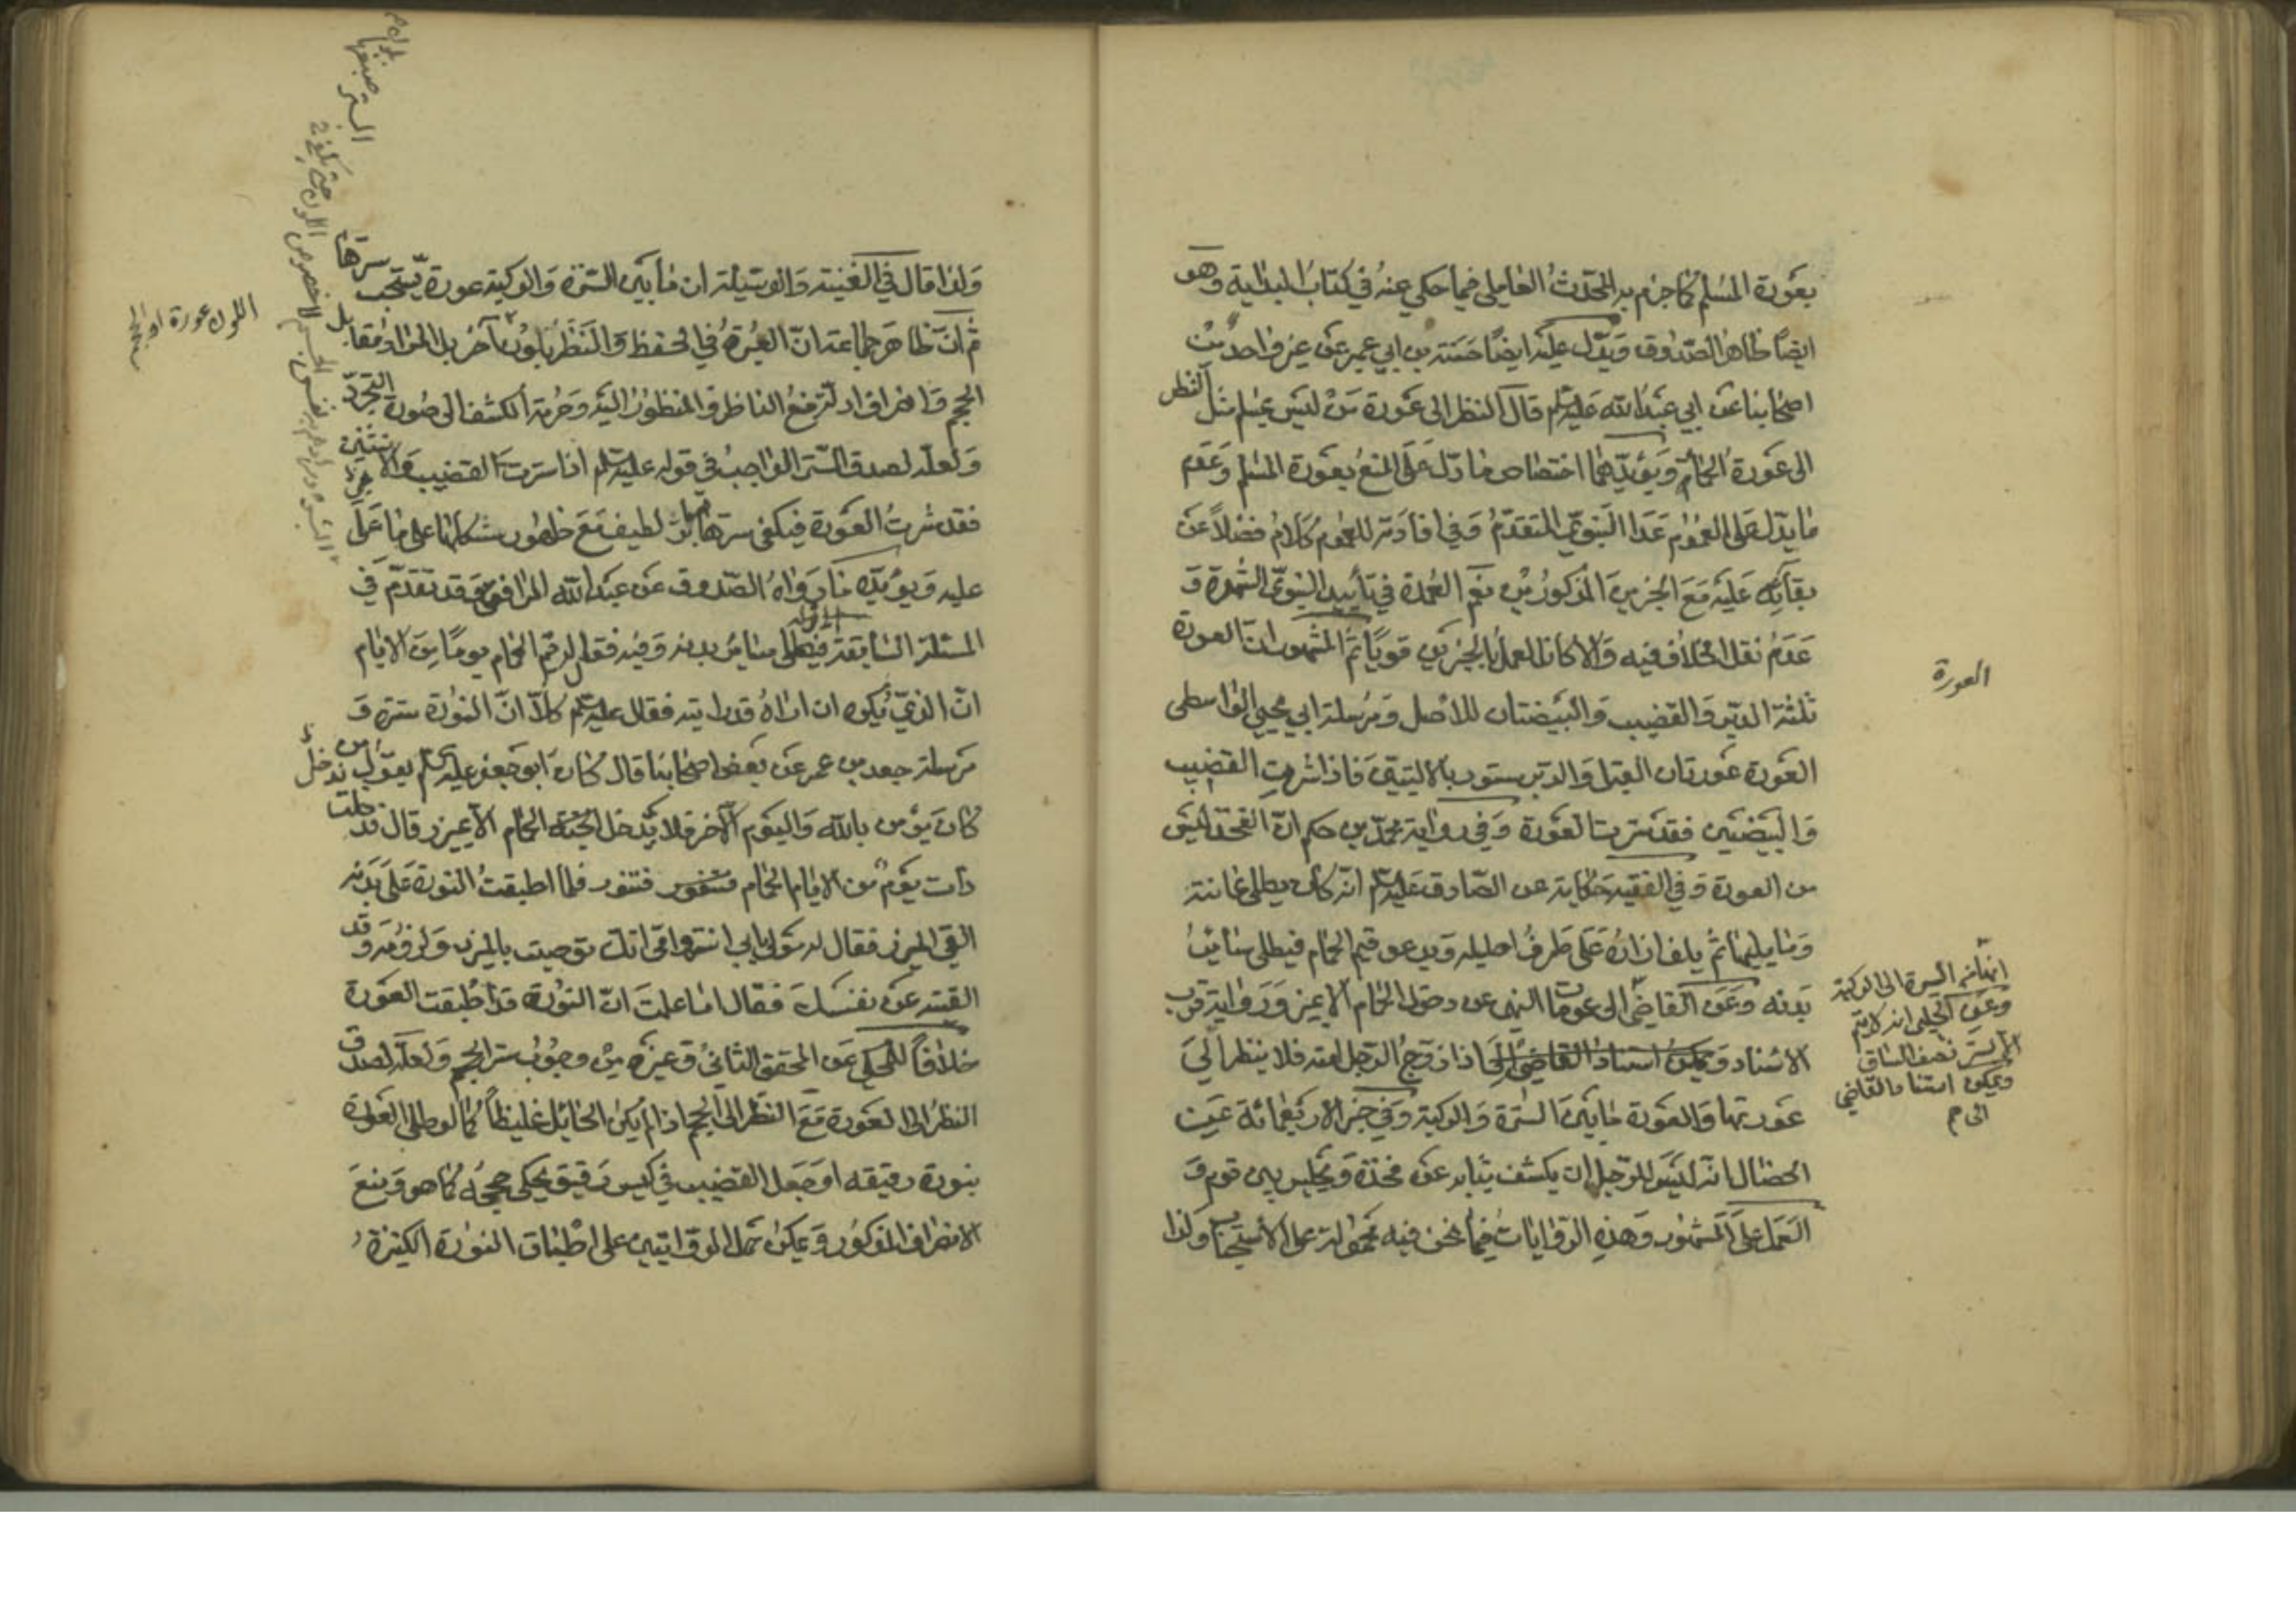 بعورة المسلم كما جزم به المحدث العاملي فيما حكي عنه في كتاب البداية وهو
ايضا ظاهر الصدوق ويدل عليه ايضا حسنة بن ابي عمير عن غير واحد من
اصحابنا عن ابي عبد الله عليه السلم قال النظر الى عورة من ليس بمسلم مثل النظر
الى عورة الحمار ويؤيدهما اختصاص ما دل على المنع بعورة المسلم وعدم
ما يدل على العموم عدا النبوي المتقدم وفي افادته للعموم كلام فضلا عن
بقائه عليه مع الخبرين المذكورين نعم العمدة في تأييد النبوي الشهرة و
عدم نقل الخلاف فيه والا كان العمل بالخبرين قويا ثم المشهور ان العورة
ثلثة الدبر والقضيب والبيضتان للاصل ومرسلة ابي يحيى الواسطي
العورة عورتان القبل والدبر مستور بالاليتين فاذا سترت القضيب
والبيضتين فقد سترت العورة وفي رواية محمد بن حكيم ان الفخذ ليس
من العورة وفي الفقيه حكاية عن الصادق عليه السلم انه كان يطلي عانته
وما يليها ثم يلف ازاره على طرف احليله ويدعو قيم الحمام فيطلي سائر
بدنه وعن القاضي الى عموما النهي عن دخول الحمام الا بميزر ورواية قرب
الاسناد ويمكن استناد القاضي الى اذا زوج الرجل امته فلا ينظر الى
عورتها والعورة ما بين السرة والركبة وفي خبر الاربعمائة عن
الخصال انه ليس للرجل ان يكشف ثيابه عن فخذه ويجلس بين قوم و
العمل على المشهور وهذه الروايات فيما نحن فيه محمولة على الاستحباب ولذا
العورة
انها من السرة الى الركبة
وعن الحلبي انه لا يتم
الا بستر نصف الساق
ويمكن استناد القاضي
الى م
ولذا قال في الغنية والوسيلة ان ما بين السرة والركبة عورة يستحب سترها
ثم ان ظاهر جماعة ان العبرة في الحفظ والنظر باللون آخر بل المراد مقابل
الحجم وافتراق ادلته منع الناظر والمنظور اليه وحرمة الكشف الى صورة التجرد
ولعله لصدق الستر الواجب في قوله عليه السلم اذا سترت القضيب والانثيين
فقد سترت العورة فيكفي سترها لطيف مع ظهور شكلها على ما على
عليه ويؤيده ما رواه الصدوق عن عبد الله المرافقي وقد تقدم في
المسئلة السابقة فيطلي سائر بدنه وفيه فقال له قيم الحمام يوما من الايام
ان الذي تكره ان اراه قد رايته فقال عليه السلم كلا ان النورة سترة و
مرسلة عن بعض اصحابنا قال كان ابو جعفر عليه السلم يقول من
كان يؤمن بالله واليوم الآخر فلا يدخل الحمام الا بميزر قال فدخل
ذات يوم من الايام الحمام فتنور فلما اطبقت النورة على بدنه
القى الميزر فقال له مولى بابي انت وامي انك توصينا بالميزر ولزومه وقد
القيته عن نفسك فقال اما علمت ان النورة قد اطبقت العورة
خلافا للمحكي عن المحقق الثاني وغيره من وجوب ستر الحجم ولعله لصدق
النظر الى العورة مع النظر الى الحجم اذا لم يكن الحائل غليظا كما لو طلى العورة
بنورة رقيقه او جعل القضيب في كيس رقيق يحكي حجمه كما هو ومنع
الانصراف المذكور ويمكن حمل الروايتين على اطباق النورة الكثيرة
اللون عورة او